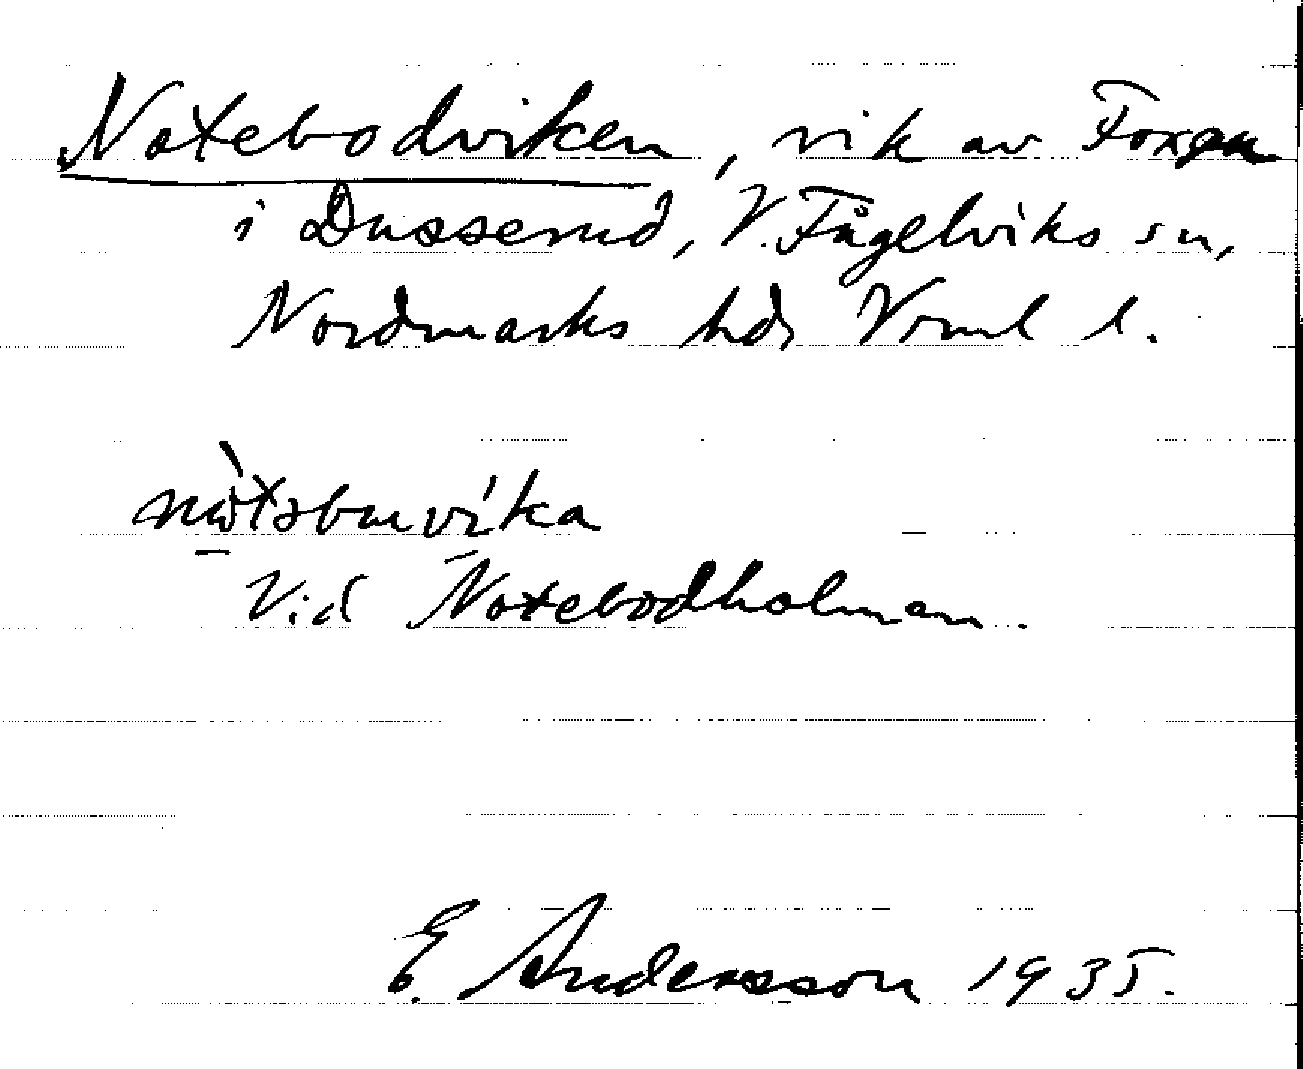 Notebodviken, vik av Foxen
i Dusserud, V. Fågelviks sn,
Nordmarks hd, Vrml l.
vid Notebodholmen.
E. Andersson 1935.